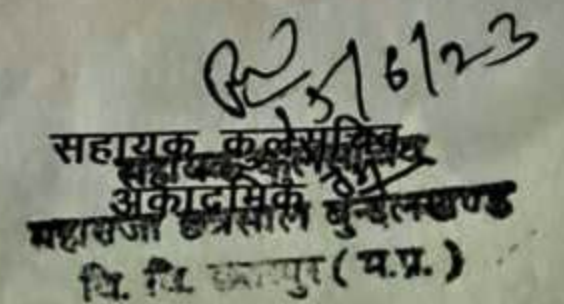 5/6/23
सहायक कुलसचिव
सहायक कुलसचिव
अकादमिक
महाराजा छत्रसाल बुन्देलखण्ड
वि. वि. छतरपुर ( म.प्र. )